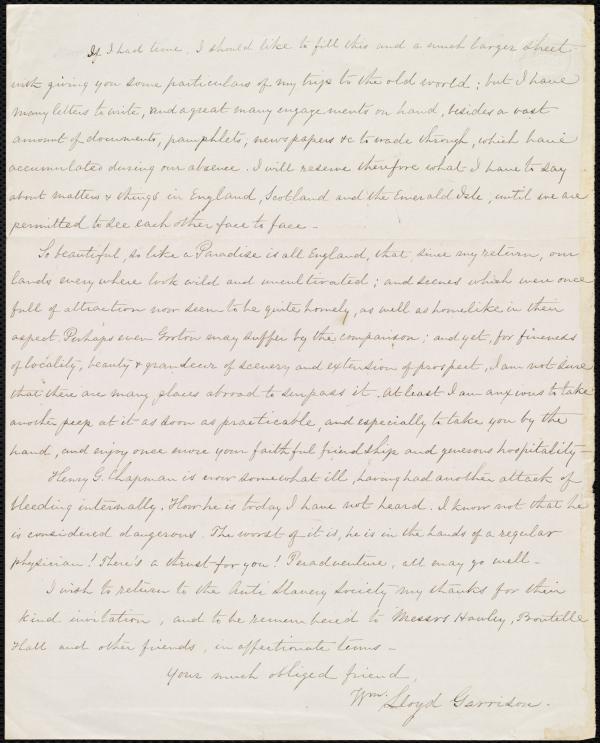 If I had time, I should like to fill this and a much larger sheet
with giving you some particulars of my trip to the old world; but I have
many letters to write, and a great many engagements on hand, besides a vast
amount of documents, pamphlets, newspapers &c to wade through, which have
accumulated during our absence. I will reserve therefore what I have to say
about matters & things in England, Scotland and the Emerald Isle, until we are
permitted to see each other face to face –
So beautiful, so like a Paradise is all England, that, since my return, our
lands every where look wild and uncultivated; and scenes which were once
full of attraction now seem to be quite homely, as well as homelike in their
aspect. Perhaps even Groton may suffer by the comparison; and yet, for fineness
of locality, beauty & grandeur of scenery and extension of prospect, I am not sure
that there are many places abroad to surpass it. At least I am anxious to take
another peep at it as soon as practicable, and especially to take you by the
hand, and enjoy once more your faithful friendship and generous hospitality –
Henry G. Chapman is now somewhat ill, having had another attack of
bleeding internally. How he is today I have not heard. I know not that he
is considered dangerous. The worst of it is, he is in the hands of a regular
physician! There's a thrust for you! Peradventure, all may go well –
I wish to return to the Anti Slavery Society my thanks for their
kind invitation, and to be remembered to Messrs Hawley, Boutelle
Hall and other friends, in affectionate terms –
Your much obliged friend,
Wm. Lloyd Garrison.